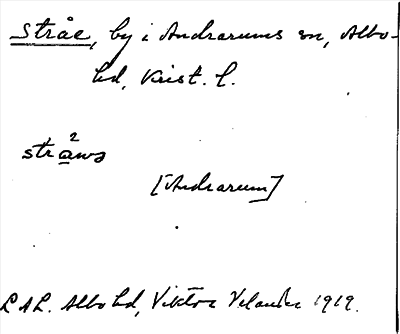 Stråe, by i Andrarums sn, Albo-
hd, Krist. l.
2
stråws
[Andrarum]
LAL. Albo hd, Viktor Velander 1919.